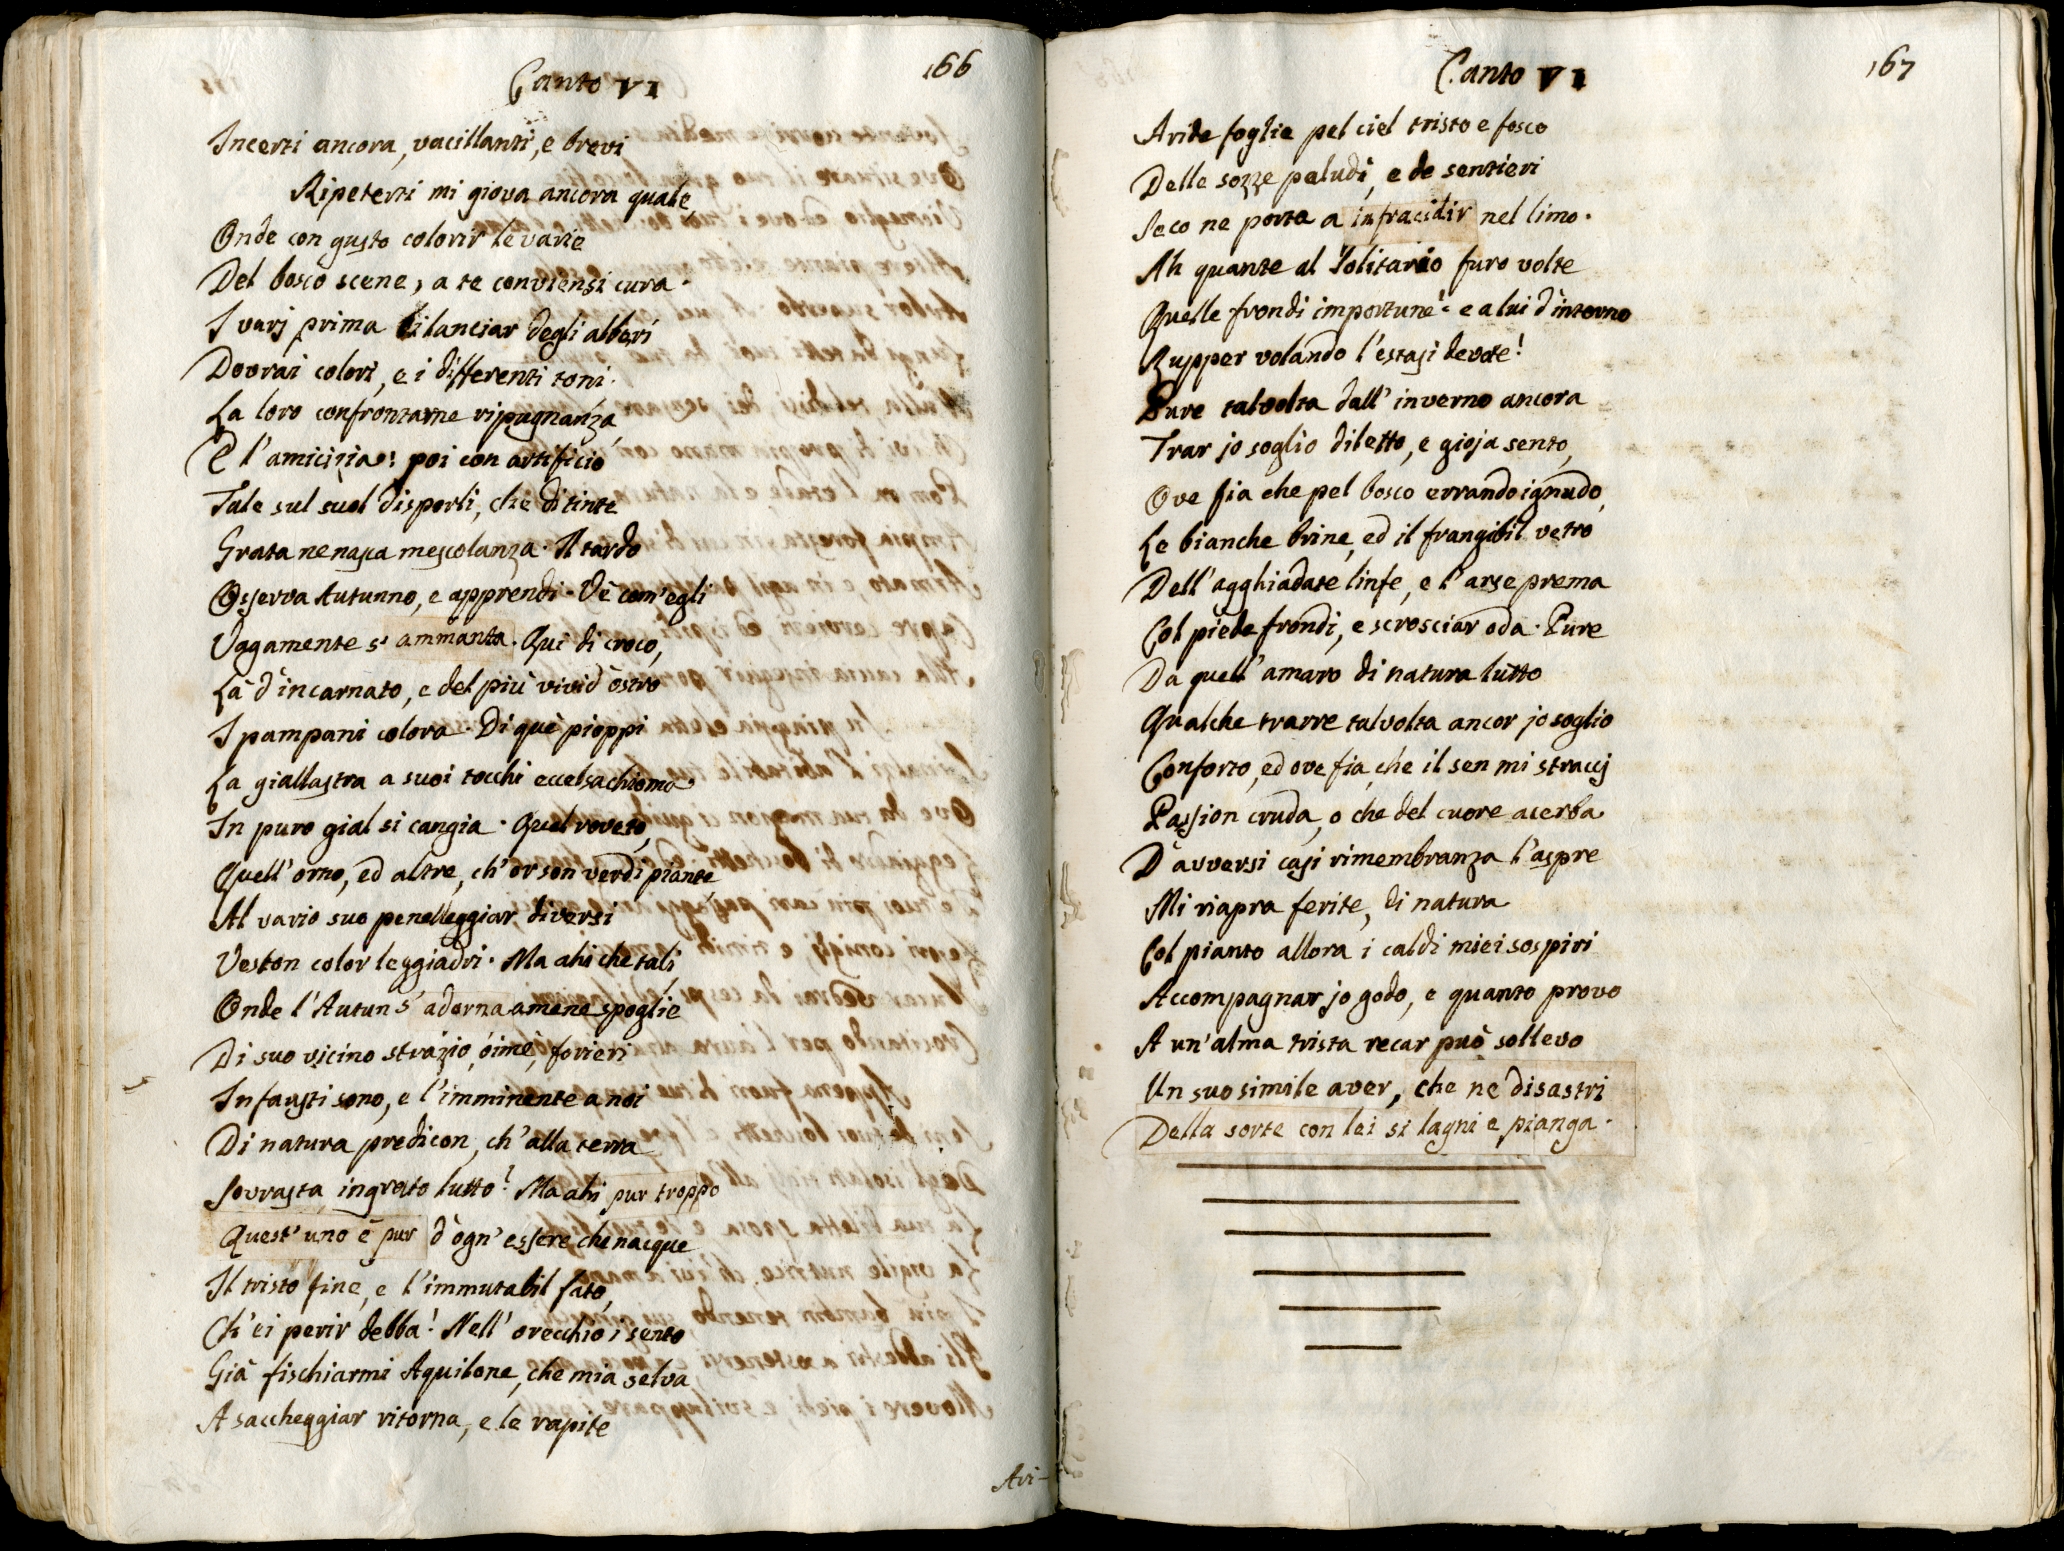 Canto VI
166
Incerti ancora, vacillanti, e brevi
Ripeterti mi giova ancora quale,
Onde con gusto colorir le varie
Del bosco scene, a te conviensi cura.
I varj prima bilanciar degli alberi
Dovrai colori, e i differenti toni.
La loro confrontarne ripugnanza,
E l'amicizia: poi con artificio
Tale sul suol disporli, che di tinte
Grata ne nasca mescolanza. Il tardo
Osserva Autunno, e apprendi. Vè com'egli
Vagamente s'ammanta. Qui di croco,
Là d'incarnato, e del più vivid'ostro
I pampani colora. Di què pioppi
La giallastra a suoi tocchi eccelsa chioma
In puro gial si cangia. Quel roveto,
Quell'orno, ed altre, ch'or son verdi piante,
Al vario suo penelleggiar, diversi
Veston color leggiadri. Ma ahi che tali,
Onde l'Autun s'adorna amene spoglie
Di suo vicino strazio, oimè, forieri
Infausti sono, e l'imminente a noi
Di natura predicon, ch'alla terra
Sovrasta ingrato lutto! Ma ahi pur troppo
Quest'uno è pur d'ogn'essere che nacque
Il tristo fine, e l'immutabil fato,
Ch'ei perir debba! Nell'orecchio i sento
Già fischiarmi Aquilone, che mia selva
A saccheggiar ritorna, e le rapite
Ari-
Canto VI
167
Aride foglie pel ciel tristo e fosco
Delle sozze paludi, e de sentieri
Seco ne porta a infracidir nel limo.
Ah quante al Solitario furo volte
Quelle frondi importune! e a lui d'intorno
Rupper volando l'estasi devote!
Pure talvolta dall'inverno ancora
Trar jo soglio diletto, e gioja sento,
Ove fia che pel bosco errando ignudo,
Le bianche brine, ed il frangibil vetro
Dell'agghiadate linfe, e l'arse prema
Col piede frondi, e scrosciar oda. Pure
Da quell'amaro di natura lutto
Qualche trarre talvolta ancor jo soglio
Conforto, ed ove fia, che il sen mi straccj
Passion cruda, o che del cuore acerba
D'avversi casi rimembranza l'aspre
Mi riapra ferite, di natura
Col pianto allora i caldi miei sospiri
Accompagnar jo godo, e quanto provo
A un'alma trista recar può sollevo
Un suo simile aver, che ne disastri
Della sorte con lei si lagni e pianga.